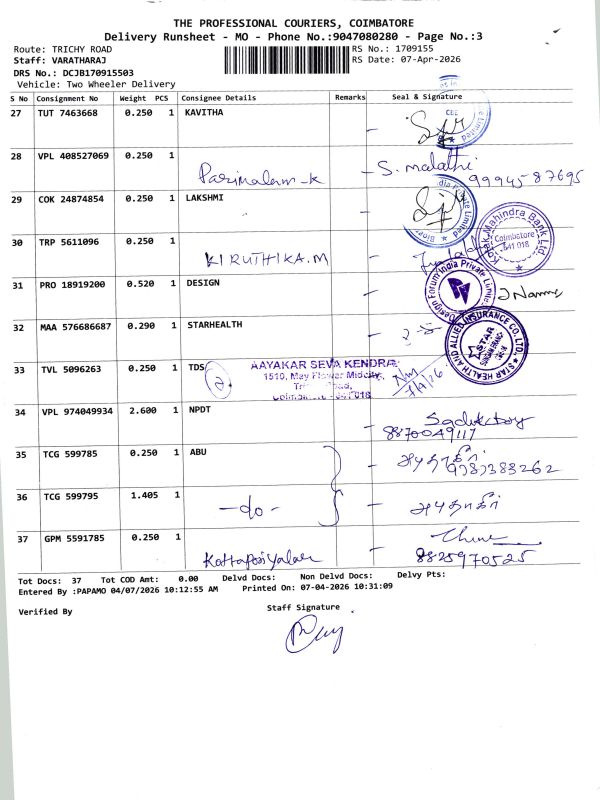 THE PROFESSIONAL COURIERS, COIMBATORE
Delivery Runsheet - MO - Phone No.:9047080280 - Page No.:3
Route: TRICHY ROAD
RS No.: 1709155
Staff: VARATHARAJ
RS Date: 07-Apr-2026
DRS No.: DCJB170915503
Vehicle: Two Wheeler Delivery
S No Consignment No Weight PCS Consignee Details Remarks Seal & Signature
27 TUT 7463668 0.250 1 KAVITHA
28 VPL 408527069 0.250 1
Parimalam-K
S. malathi
9994587695
29 COK 24874854 0.250 1 LAKSHMI
30 TRP 5611096 0.250 1
KIRUTHIKA.M
Kotak Mahindra Bank Ltd
Coimbatore
641 018
31 PRO 18919200 0.520 1 DESIGN
Design Forum India Private Limited
32 MAA 576686687 0.290 1 STARHEALTH
STAR HEALTH AND ALLIED INSURANCE CO. LTD.
33 TVL 5096263 0.250 1 TDS
AAYAKAR SEVA KENDRA
1510, May Flower Midcity,
Coimbatore - 641 018
7/4/26
34 VPL 974049934 2.600 1 NPDT
8870049117
35 TCG 599785 0.250 1 ABU
9787383262
36 TCG 599795 1.405 1
-do-
37 GPM 5591785 0.250 1
8825970525
Tot Docs: 37 Tot COD Amt: 0.00 Delvd Docs: Non Delvd Docs: Delvy Pts:
Entered By :PAPAMO 04/07/2026 10:12:55 AM Printed On: 07-04-2026 10:31:09
Verified By
Staff Signature